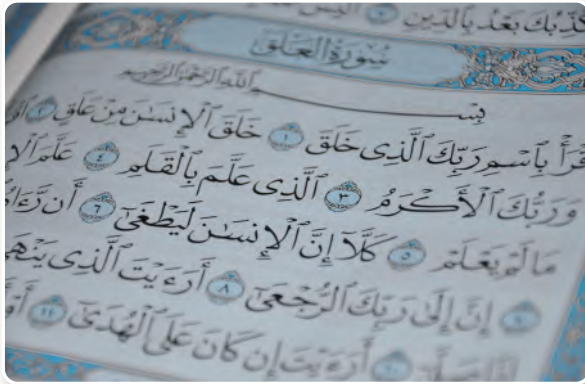 بَعْدُ بِٱلدِّينِ ٧ أَلَيْسَ
سُورَةُ العَلَقِ
بِسْمِ ٱللَّهِ ٱلرَّحْمَٰنِ ٱلرَّحِيمِ
بِٱسْمِ رَبِّكَ ٱلَّذِى خَلَقَ ١ خَلَقَ ٱلْإِنسَٰنَ مِنْ عَلَقٍ ٢
وَرَبُّكَ ٱلْأَكْرَمُ ٣ ٱلَّذِى عَلَّمَ بِٱلْقَلَمِ ٤ عَلَّمَ
مَا لَمْ يَعْلَمْ ٥ كَلَّآ إِنَّ ٱلْإِنسَٰنَ لَيَطْغَىٰٓ ٦ أَن
إِنَّ إِلَىٰ رَبِّكَ ٱلرُّجْعَىٰٓ ٨ أَرَءَيْتَ ٱلَّذِى
أَرَءَيْتَ إِن كَانَ عَلَى ٱلْهُدَىٰٓ ١١